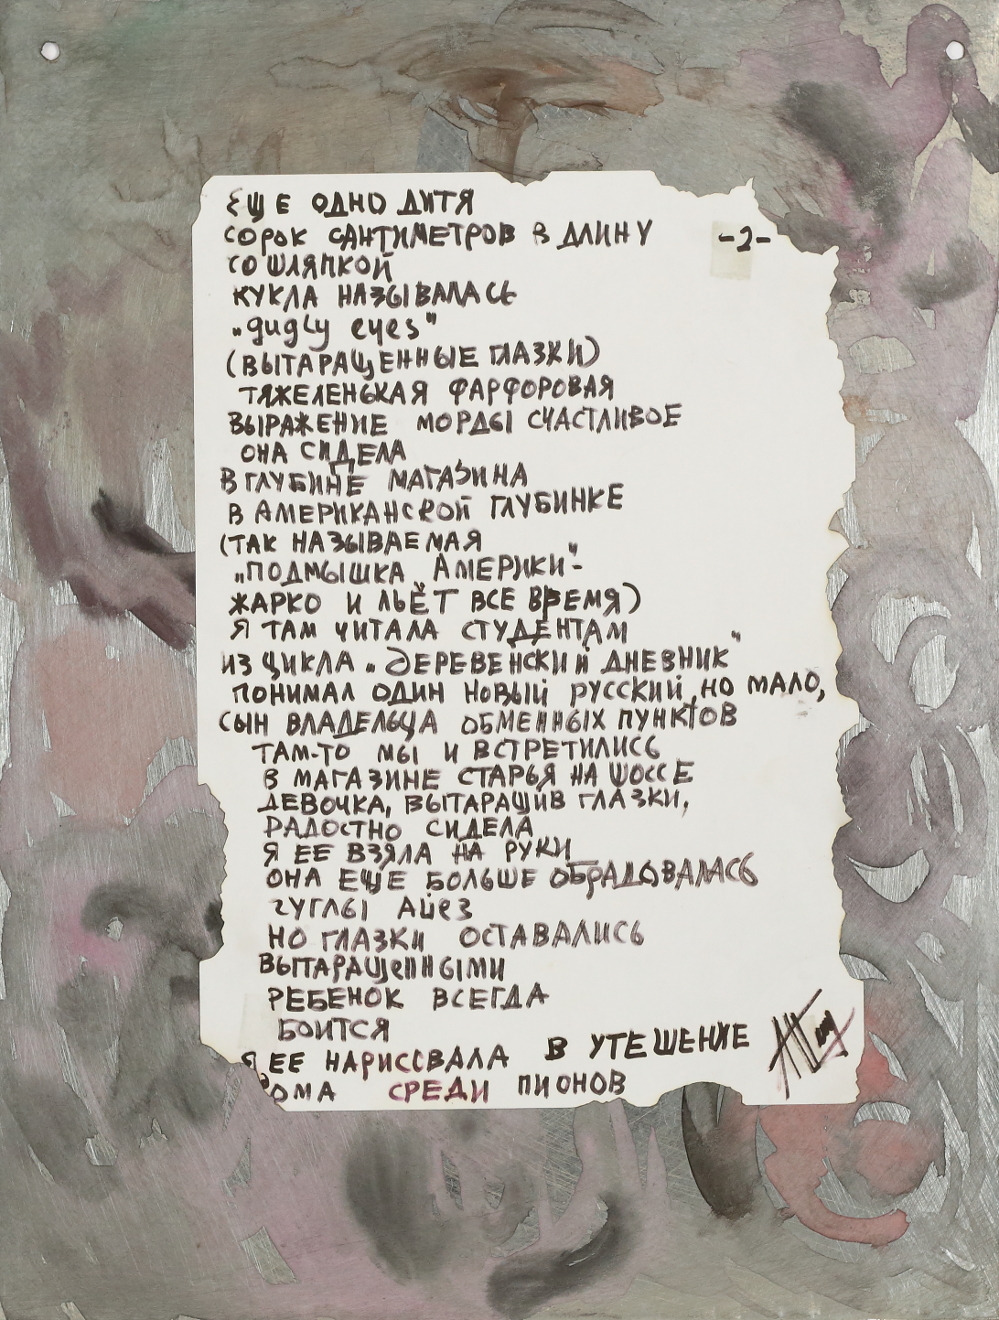 ЕЩЕ ОДНО ДИТЯ
СОРОК САНТИМЕТРОВ В ДЛИНУ
-2-
СО ШЛЯПКОЙ
КУКЛА НАЗЫВАЛАСЬ
„gugly eyes"
(ВЫТАРАЩЕННЫЕ ГЛАЗКИ)
ТЯЖЕЛЕНЬКАЯ ФАРФОРОВАЯ
ВЫРАЖЕНИЕ МОРДЫ СЧАСТЛИВОЕ
ОНА СИДЕЛА
В ГЛУБИНЕ МАГАЗИНА
В АМЕРИКАНСКОЙ ГЛУБИНКЕ
(ТАК НАЗЫВАЕМАЯ
„ПОДМЫШКА АМЕРИКИ"-
ЖАРКО И ЛЬЁТ ВСЕ ВРЕМЯ)
Я ТАМ ЧИТАЛА СТУДЕНТАМ
ИЗ ЦИКЛА „ДЕРЕВЕНСКИЙ ДНЕВНИК"
ПОНИМАЛ ОДИН НОВЫЙ РУССКИЙ, НО МАЛО,
СЫН ВЛАДЕЛЬЦА ОБМЕННЫХ ПУНКТОВ
ТАМ-ТО МЫ И ВСТРЕТИЛИСЬ
В МАГАЗИНЕ СТАРЬЯ НА ШОССЕ
ДЕВОЧКА, ВЫТАРАЩИВ ГЛАЗКИ,
РАДОСТНО СИДЕЛА
Я ЕЕ ВЗЯЛА НА РУКИ
ОНА ЕЩЕ БОЛЬШЕ ОБРАДОВАЛАСЬ
ГУГЛЫ АЙЕЗ
НО ГЛАЗКИ ОСТАВАЛИСЬ
ВЫТАРАЩЕННЫМИ
РЕБЕНОК ВСЕГДА
БОИТСЯ
Я ЕЕ НАРИСОВАЛА В УТЕШЕНИЕ
ДОМА СРЕДИ ПИОНОВ